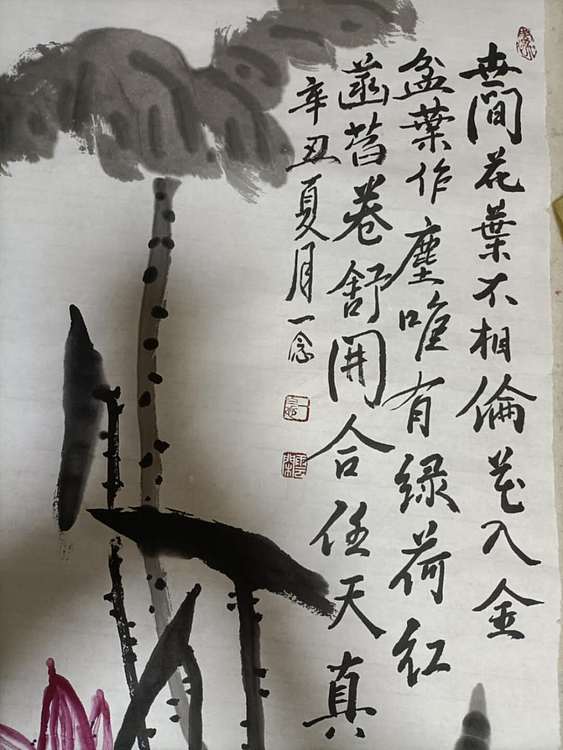 世間花葉不相倫花入金
盆葉作塵唯有绿荷红
菡萏卷舒開合任天真
辛丑夏月一念